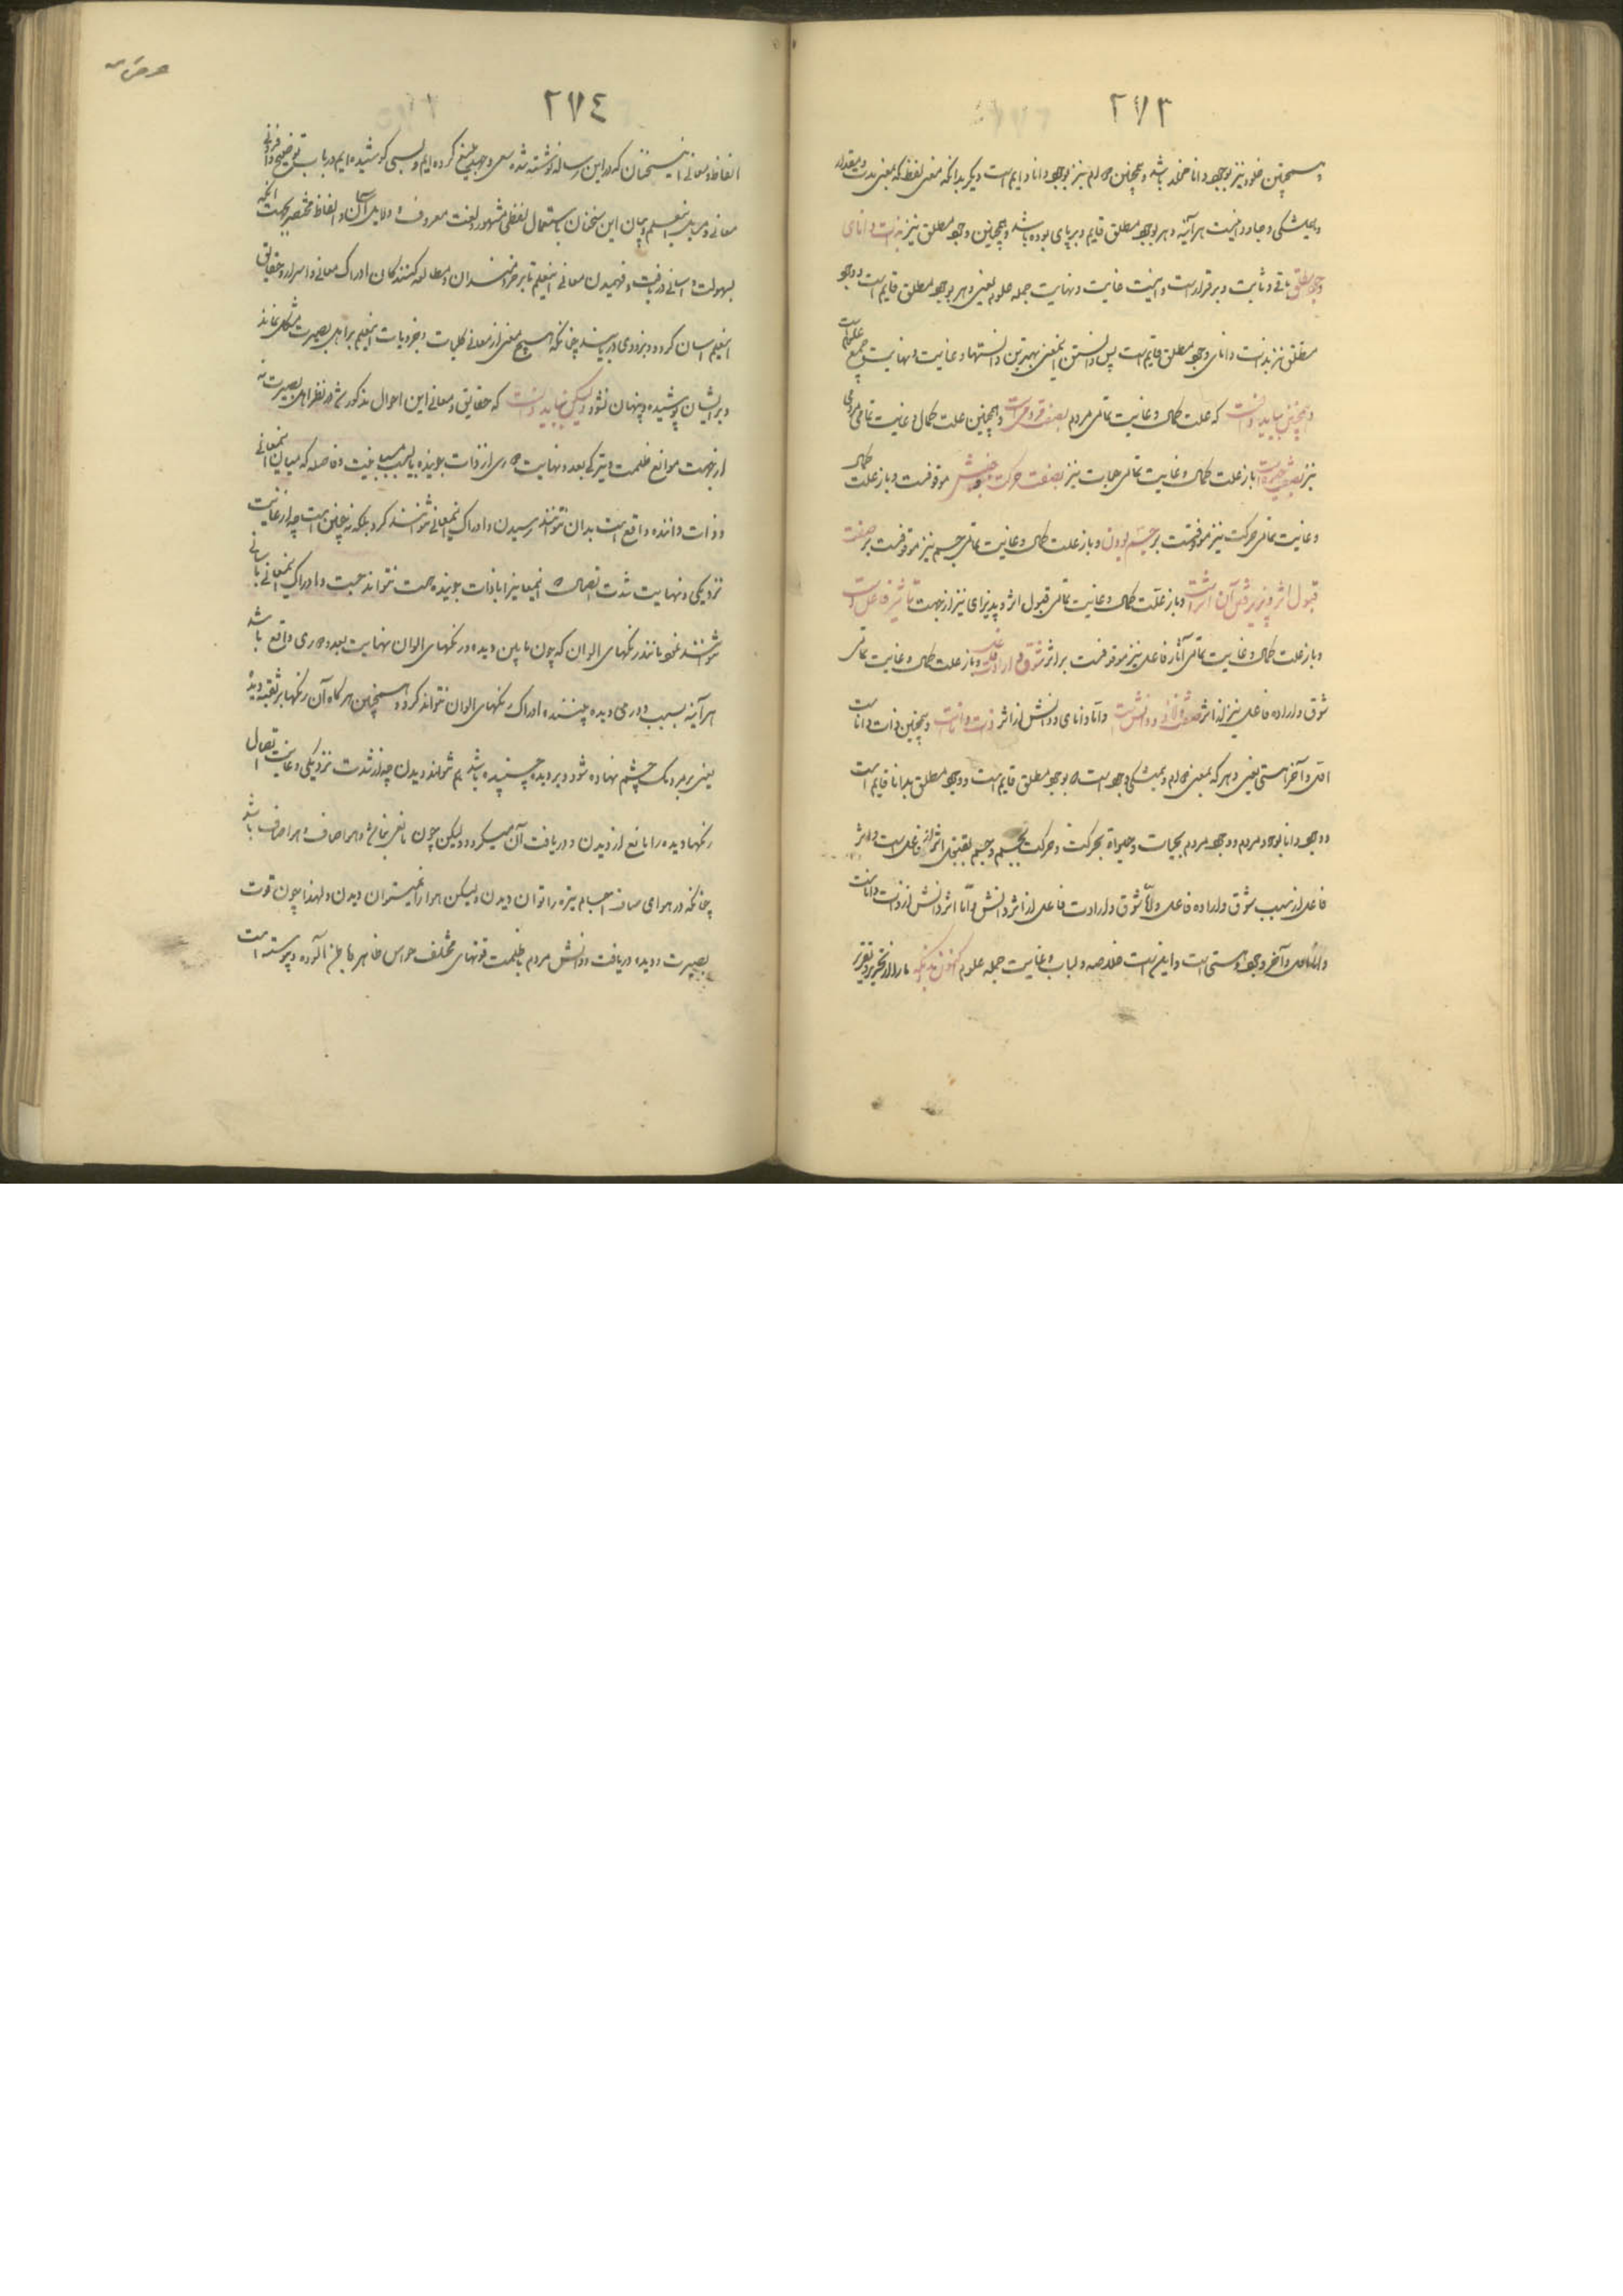 ۲۷۳
و همچنین خلود نیز بوجود دانا مخلد باشد و همچنین دوام نیز بوجود دانا دایم است دیگر بدانکه معنی لفظ که بمعنی مدت و مقدار
و همیشگی و جاودانیست هر آینه دهر بوجود مطلق قایم و برپای بوده باشد و همچنین وجود مطلق نیز بذات دانای
وجود مطلق باقی و ثابت و برقرار است و اینست غایت و نهایت جمله علوم یعنی دهر بوجود مطلق قایم است و وجود
مطلق نیز بذات دانای وجود مطلق قایم است پس دانستن اینمعنی بهترین دانستنها و غایت و نهایت جمیع علومست
و همچنین بباید دانست که علت کمال و غایت تمامی مردم بصفت مردمی است و همچنین علت کمال و غایت تمامی مردمی
نیز بصفت حیاتست باز علت کمال و غایت تمامی حیات نیز بصفت حرکت و جنبش موقوفست و باز علت کمال
و غایت تمامی حرکت نیز موقوفست بر جسم بودن و باز علت کمال و غایت تمامی جسم نیز موقوفست بر صفت
قبول اثر و پذیرفتن آن اثرست و باز علت کمال و غایت تمامی قبول اثر و پذیرای نیز از جهت تأثیر فاعل است
و باز علت کمال و غایت تمامی آثار فاعل نیز موقوفست بر اثر شوق و ارادت فاعل و باز علت کمال و غایت تمامی
شوق و اراده فاعل نیز از اثر صفت دانائی و دانش است و اما دانای و دانش از اثر ذات داناست و همچنین ذات داناست
اول و آخر هستی یعنی دهر که بمعنی دوام و همیشگی وجود است بوجود مطلق قایم است و وجود مطلق بدانا قایم است
و وجود دانا بوجود مردم و وجود مردم بحیات و حیواة بحرکت و حرکت بجسم و جسم بقبول اثر از فاعل است و اثر
فاعل از سبب شوق و اراده فاعل و اما شوق و ارادت فاعل از اثر دانش و اما اثر دانش از ذات داناست
و دانا اول و آخر وجود هستی است و اینست خلاصه و لباب و غایت جمله علوم اکنون بدانکه ما را از تحریر و تقریر
۲۷٤
الفاظ و معانی اینسخنان که در این رساله نوشته شده سعی و جهد بلیغ کرده ایم و بسی کوشیده ایم در باب توضیح و افزونی
معانی و در بیان این سخنان باستعمال لفظ مشهور و لغت معروف و دلایل آسان و الفاظ مختصر بجهت آنکه
بسهولت و آسانی دریافت و فهمیدن معانی اینعلم تا بر خردمندان و مطالعه کنندگان ادراک معانی و اسرار و حقایق
اینعلم آسان گردد و بزودی دریابند چنانکه هیچ معنی از معانی کلیات و جزویات اینعلم بر اهل بصیرت مشکل نماند
و بر ایشان پوشیده و پنهان نشود ولیکن بباید دانست که حقایق و معانی این احوال مذکور شده در نظر اهل بصیرت نه
از جهت موانع ظلمت و تیرگی بعد و نهایت دوری از ذات بوینده یا بسبب مباینت و فاصله که میان اینمعانی
و ذات داننده واقع است بدان نتوانند رسیدن و ادراک اینمعانی نتوانند کرد بلکه نه چنین است چه از غایت
نزدیکی و نهایت شدت اتصال اینمعانی با ذات بوینده است نتواند جست و ادراک اینمعانی بآسانی
نتوانند نمود مانند رنگهای الوان که چون مابین دیده و رنگهای الوان نهایت بعد و دوری واقع باشد
هر آینه بسبب دوری دیده بیننده ادراک رنگهای الوان نتواند کرد و همچنین هرگاه آن رنگها بر ثقبه دیده
یعنی بر مردمک چشم نهاده شود و بر دیده چسبیده باشد هم نتواند دیدن چه از شدت نزدیکی و غایت اتصال
رنگها دیده را مانع از دیدن و دریافت آن میگردد ولیکن چون مانعی نباشد و هوا صاف باشد
چنانکه در هوای صاف اجسام تیره را توان دیدن ولیکن هوا را نمیتوان دیدن و لهذا چون قوت
بصیرت و دیده دریافت و دانش مردم بظلمت قوتهای مختلف حواس ظاهر و باطن آلوده و پیوسته است